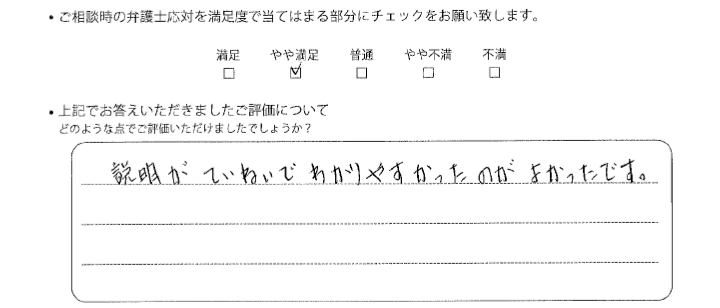 ・ご相談時の弁護士応対を満足度で当てはまる部分にチェックをお願い致します。
満足 やや満足 普通 やや不満 不満
□ ☑ □ □ □
・上記でお答えいただきましたご評価について
どのような点でご評価いただけましたでしょうか？
説明がていねいでわかりやすかったのがよかったです。